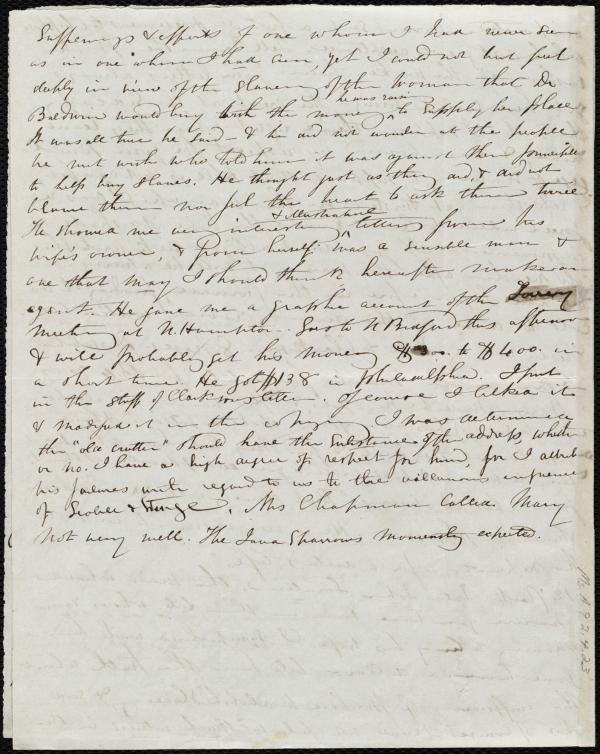 Sufferings & efforts of one whom I had never seen
as in one whom I had seen, yet I could not but feel
deeply in view of the slavery of the woman that Dr
Baldwin would buy with the money he was raising to supply her place
It was all true he said - & he did not wonder at the people
he met with who told him it was against their principles
to help buy slaves. He thought just as they did, & did not
blame them nor feel the heart to ask them twice
He showed me very interesting & illustrative letters from his
wife's owner, & from herself; was a sensible man &
one that may I should think hereafter make an
agent. He gave me a graphic account of the
meeting at N. Hampton. Goes to N Bedford this afternoon
& will probably get his money to $400. in
a short time. He got $138 in Philadelphia. I put
in the stuff of Clarkson's letter. Of course I liked it
& in the copying I was determined
the "old critter" should have the substance of the address, whether
or no. I have a high degree of respect for him, for I attribute
his failures with regard to us to the villainous influences
of Scoble & Sturge. Mrs Chapman called. Mary
not very well. The Java Sparrows momently expected.
Ms. A.9.2.4.23